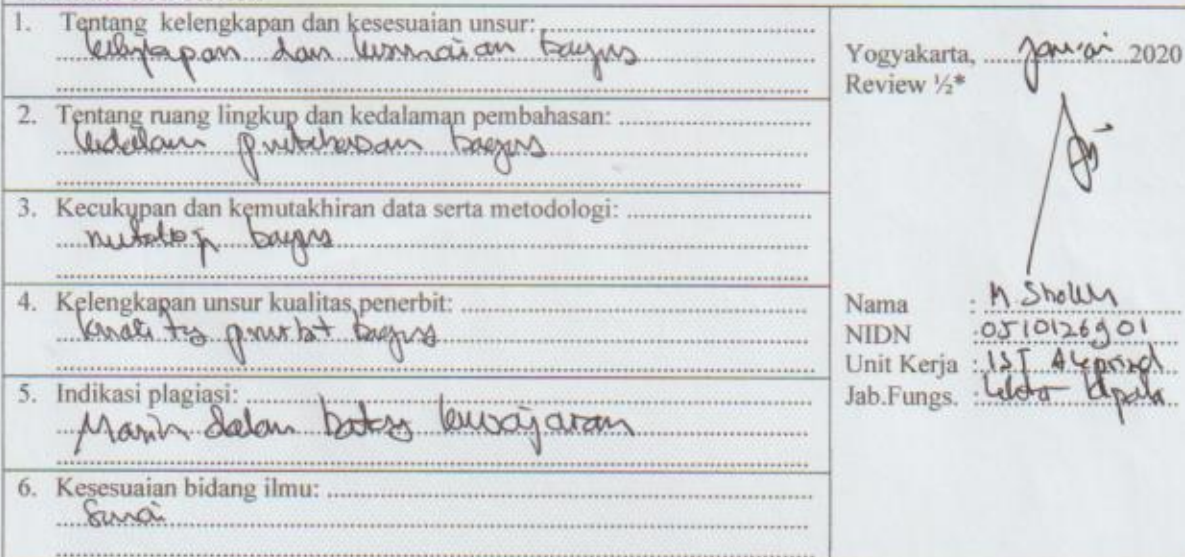 1. Tentang kelengkapan dan kesesuaian unsur:
kelengkapan dan kesesuaian bagus
2. Tentang ruang lingkup dan kedalaman pembahasan:
kedalaman pembahasan bagus
3. Kecukupan dan kemutakhiran data serta metodologi:
metodologi bagus
4. Kelengkapan unsur kualitas penerbit:
kualitas penerbit bagus
5. Indikasi plagiasi:
Masih dalam batas kewajaran
6. Kesesuaian bidang ilmu:
Sesuai
Yogyakarta, Januari 2020
Review ½*
Nama : M Sholeh
NIDN : 0510126901
Unit Kerja : IST Akprind
Jab.Fungs. : Lektor Kepala